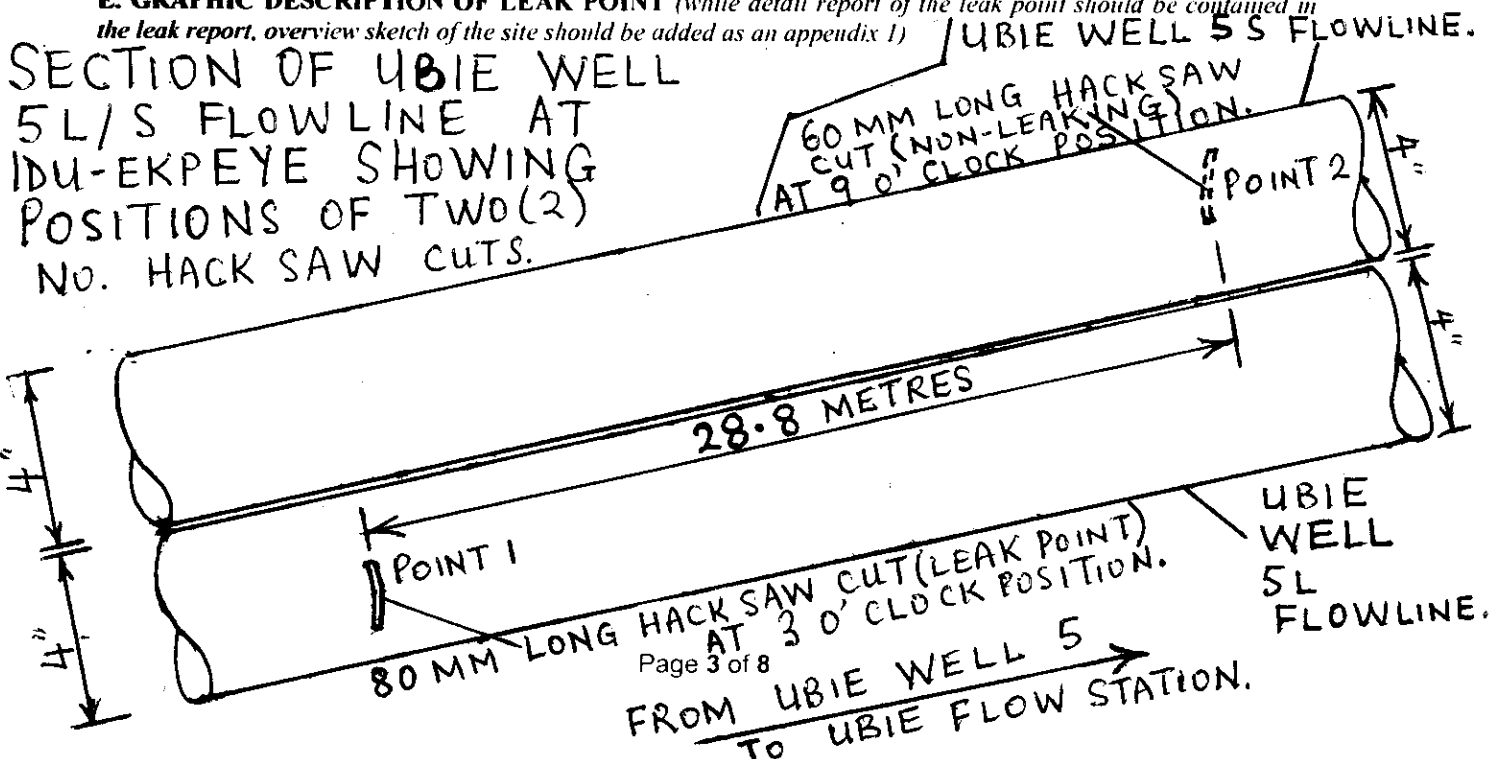 E. GRAPHIC DESCRIPTION OF LEAK POINT (While detail report of the leak point should be contained in
the leak report, overview sketch of the site should be added as an appendix 1)
UBIE WELL 5 S FLOWLINE.
SECTION OF UBIE WELL
5L/S FLOWLINE AT
IDU-EKPEYE SHOWING
POSITIONS OF TWO(2)
NO. HACK SAW CUTS.
60 MM LONG HACK SAW
CUT (NON-LEAKING)
AT 9 O'CLOCK POSITION.
POINT 2
4"
4"
28.8 METRES
4"
4"
POINT 1
80 MM LONG HACK SAW CUT (LEAK POINT)
AT 3 O'CLOCK POSITION.
UBIE
WELL
5L
FLOWLINE.
Page 3 of 8
FROM UBIE WELL 5
TO UBIE FLOW STATION.